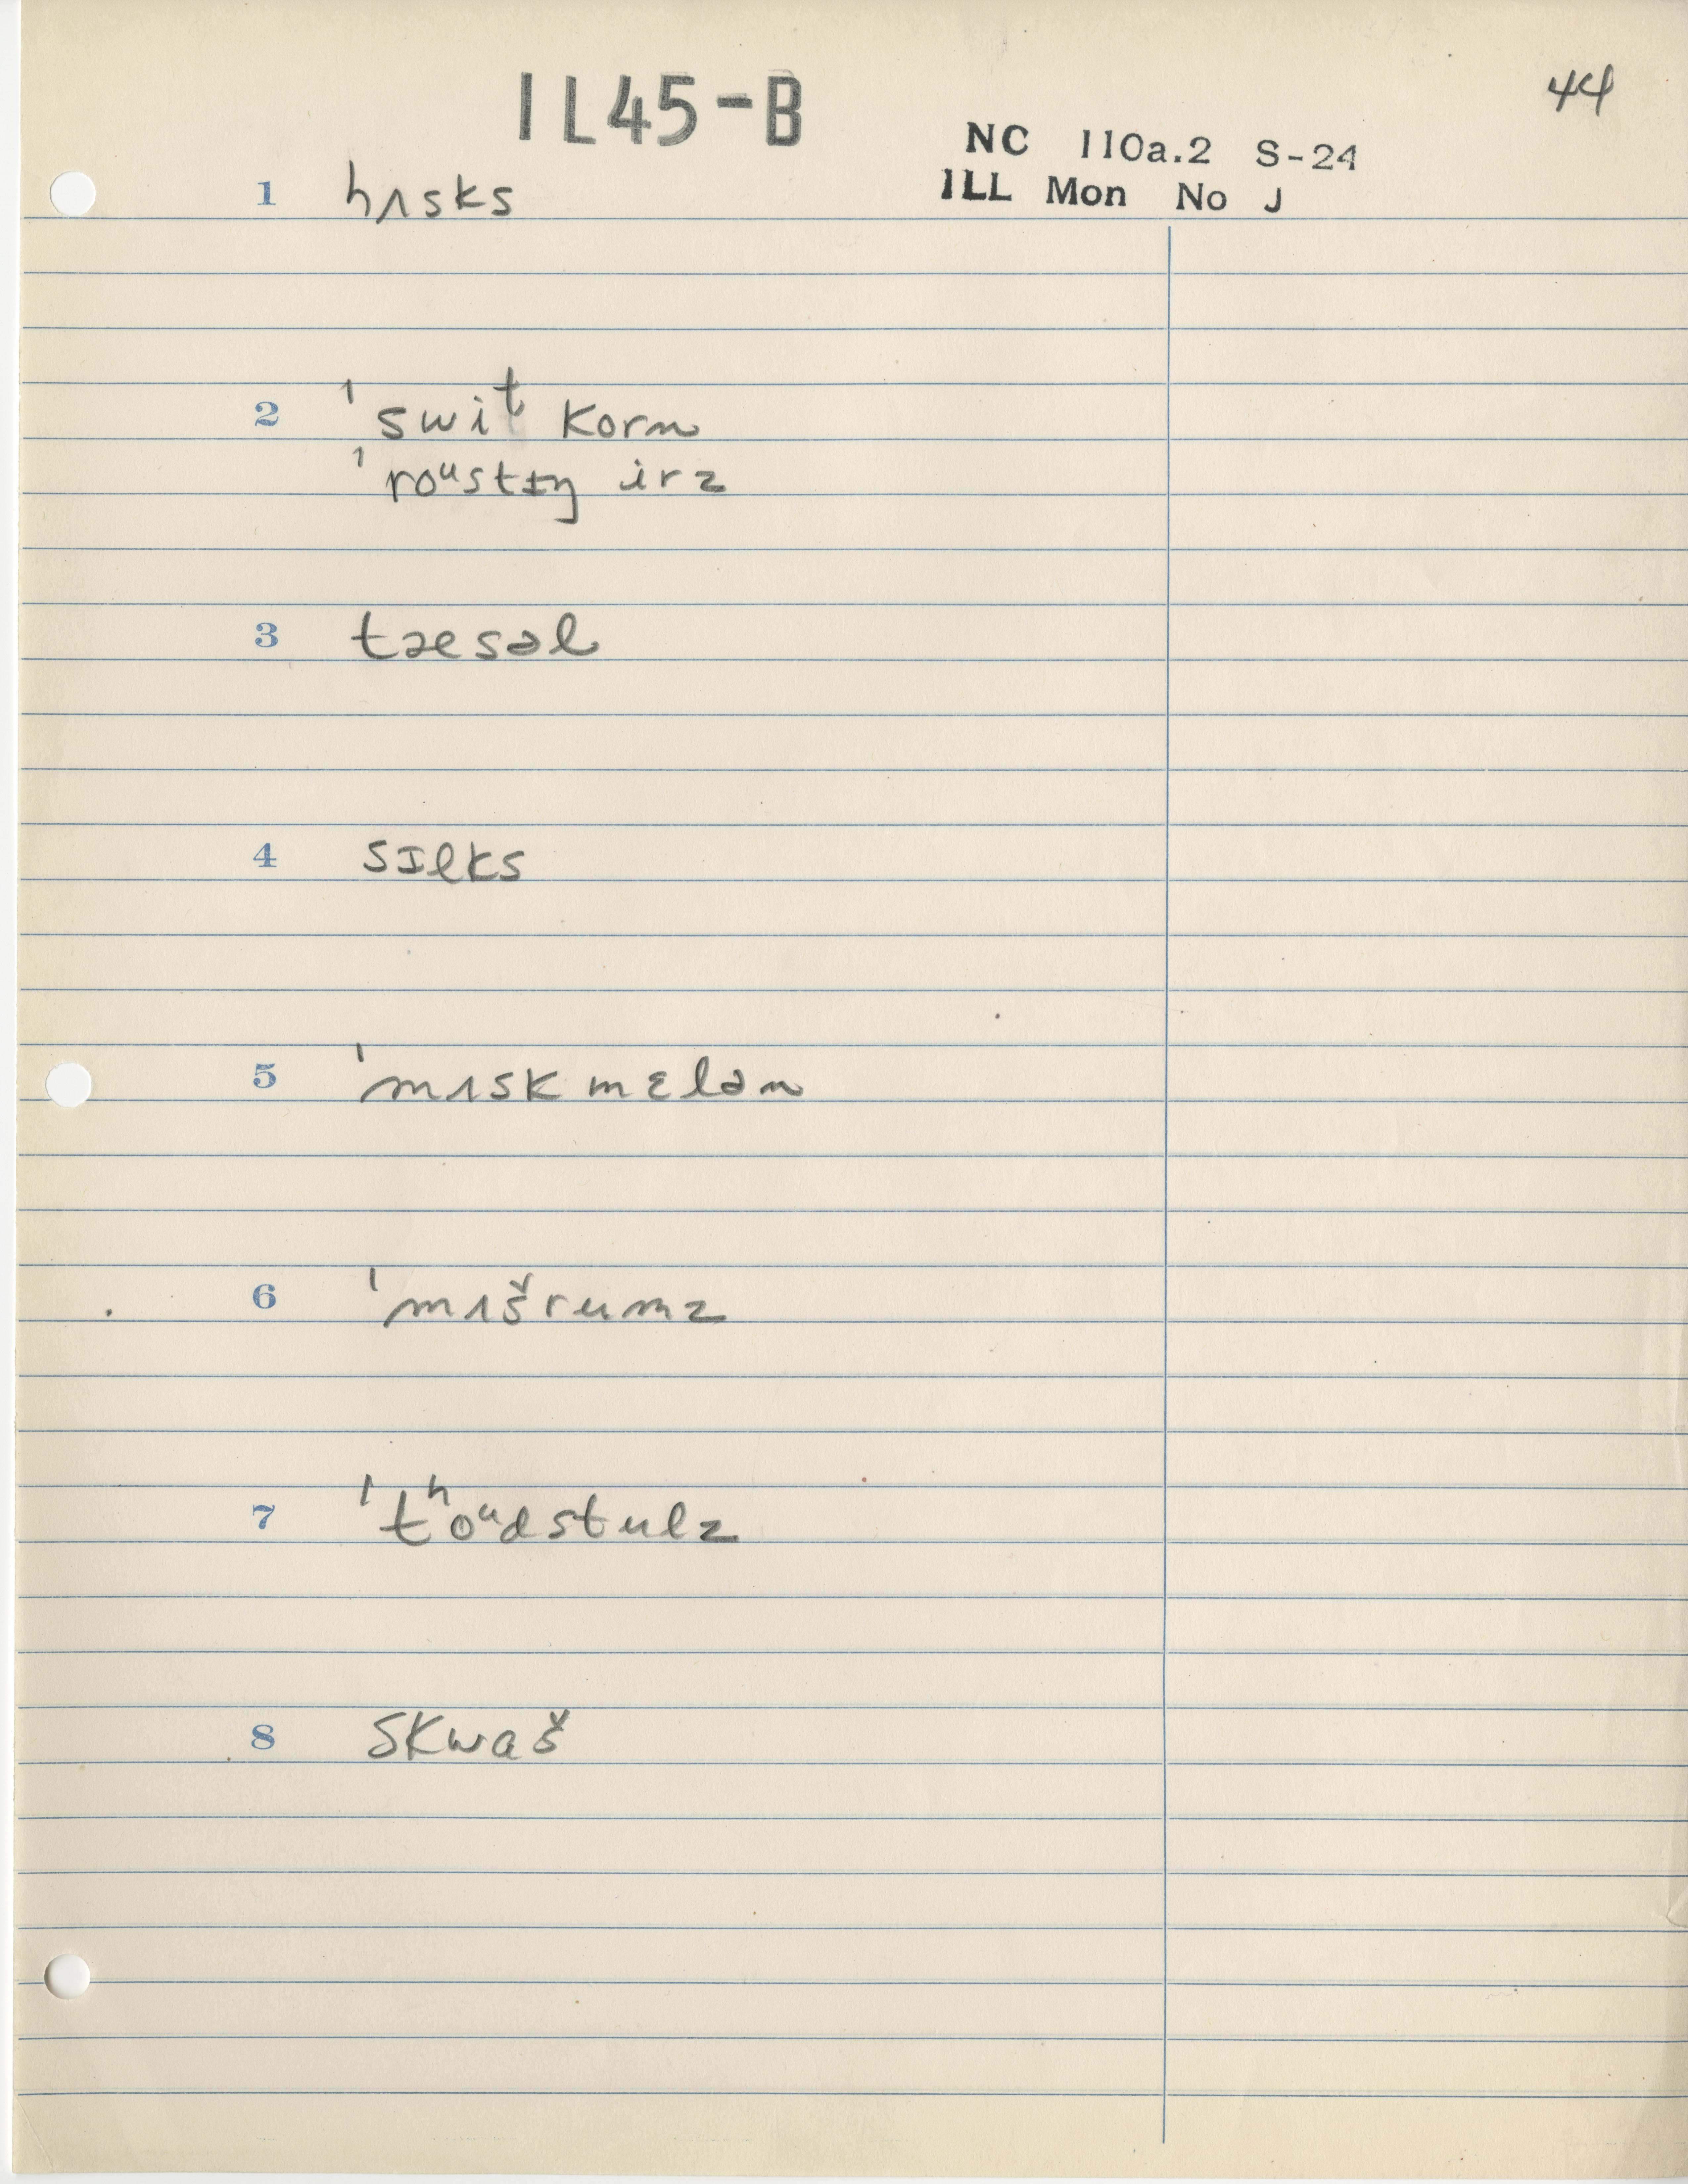 IL45-B
44
NC 110a.2 S-24
ILL Mon No J
1 hʌsks
2 ˈswiᵗ korn
ˈroᵘstɪŋ irz
3 tæsəl
4 sɪlks
5 ˈmʌskmɛlən
6 ˈmʌšrumz
7 ˈtʰoᵘdstulz
8 skwaš